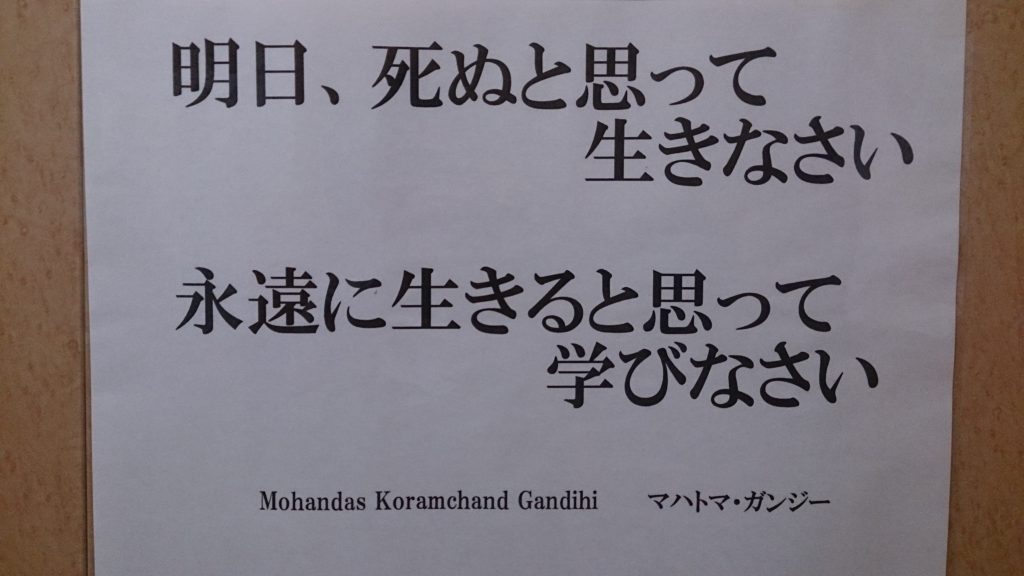 明日、死ぬと思って
生きなさい
永遠に生きると思って
学びなさい
Mohandas Koramchand Gandihi マハトマ・ガンジー